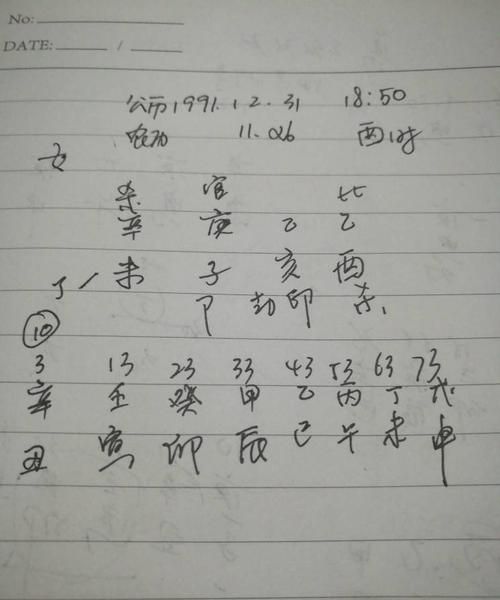 No:
DATE: /
公历1991.12.31 18:50
农历 11.26 酉时
女
杀 官 比
辛 庚 乙 乙
未 子 亥 酉
卩 劫印 杀
10
3 13 23 33 43 53 63 73
辛 壬 癸 甲 乙 丙 丁 戊
丑 寅 卯 辰 巳 午 未 申